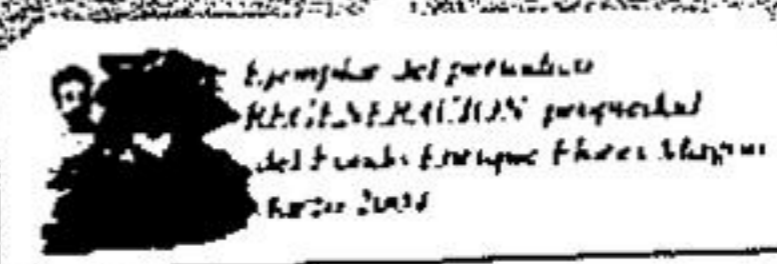 Ejemplar del periodico
REGENERACION propiedad
del Fondo Enrique Flores Magon
2004